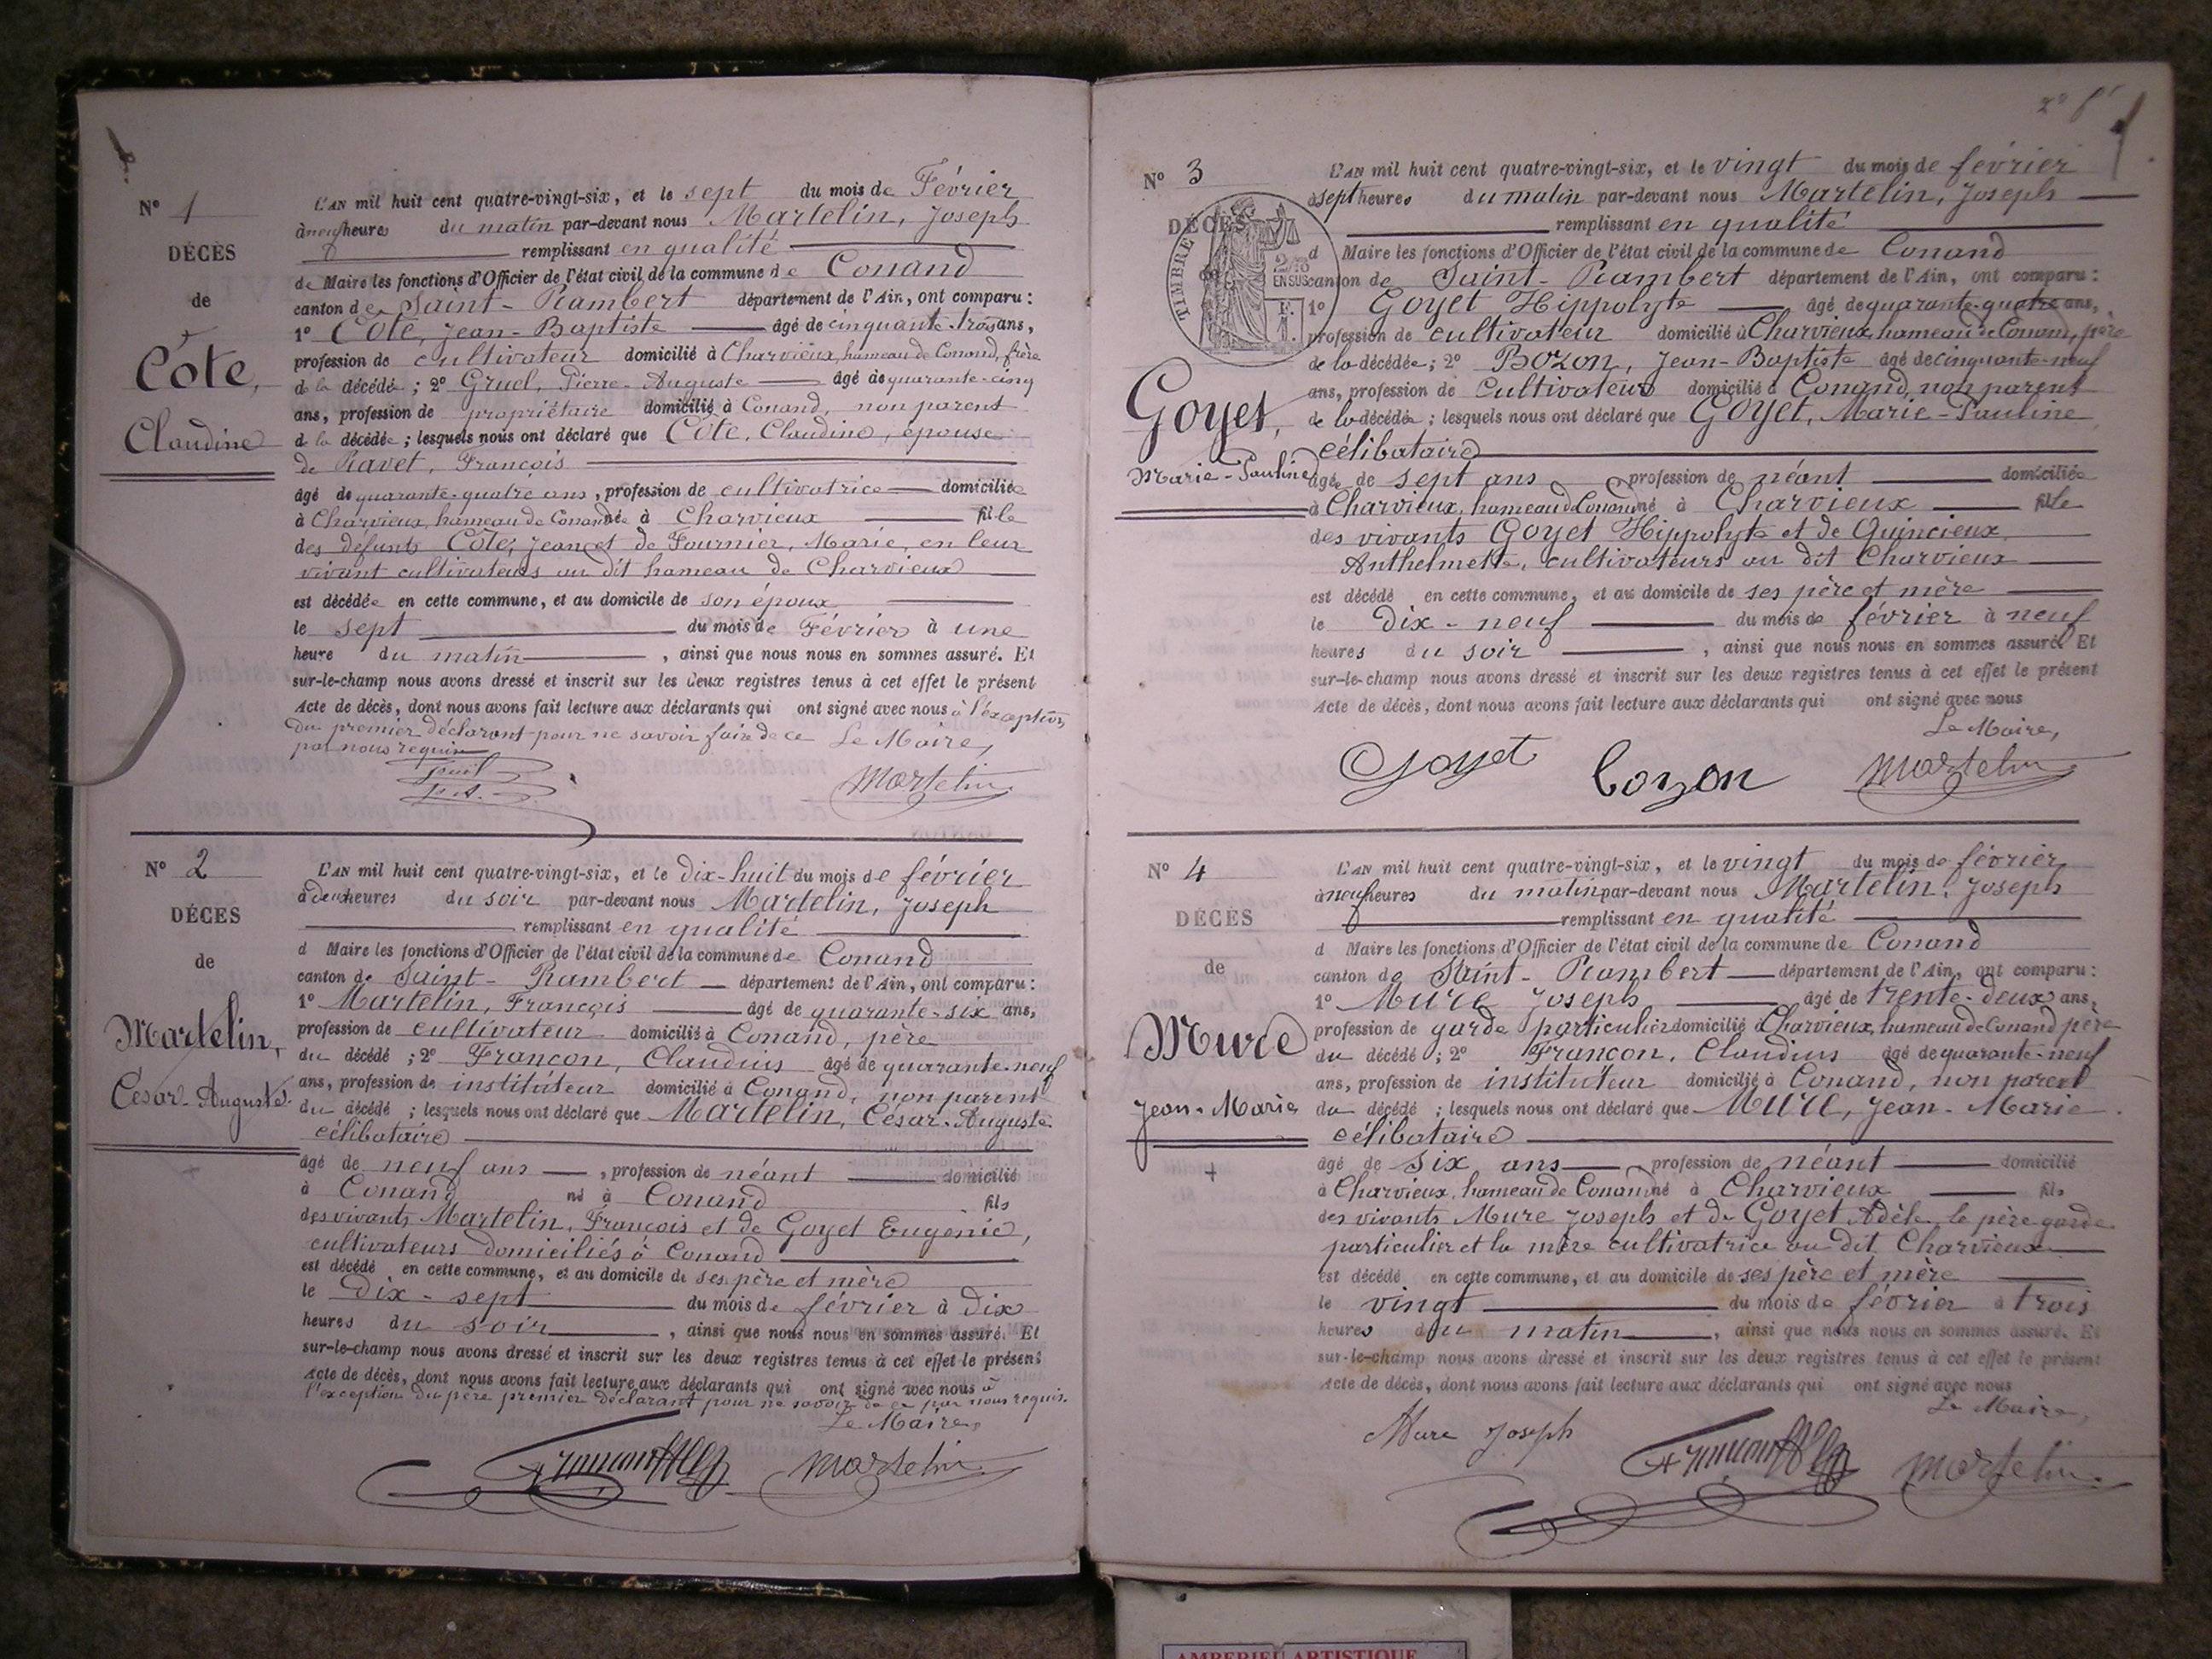 N° 1
DÉCÈS
de
Côte,
Claudine
L'AN mil huit cent quatre-vingt-six, et le sept du mois de Février
à neuf heures du matin par-devant nous Martelin, Joseph
remplissant en qualité
de Maire les fonctions d'Officier de l'état civil de la commune de Conand
canton de Saint-Rambert département de l'Ain, ont comparu :
1° Côte, Jean-Baptiste âgé de cinquante-trois ans,
profession de cultivateur domicilié à Charvieux, hameau de Conand, frère
de la décédée ; 2° Gruel, Pierre-Auguste âgé de quarante-cinq
ans, profession de propriétaire domicilié à Conand, non parent
de la décédée ; lesquels nous ont déclaré que Côte, Claudine, épouse
de Ravet, François
âgé de quarante-quatre ans, profession de cultivatrice domiciliée
à Charvieux, hameau de Conand née à Charvieux fille
des défunts Côte, Jean et de Fournier, Marie, en leur
vivant cultivateurs au dit hameau de Charvieux
est décédée en cette commune, et au domicile de son époux
le sept du mois de Février à une
heure du matin, ainsi que nous nous en sommes assuré. Et
sur-le-champ nous avons dressé et inscrit sur les deux registres tenus à cet effet le présent
Acte de décès, dont nous avons fait lecture aux déclarants qui ont signé avec nous à l'exception
du premier déclarant pour ne savoir faire de ce Le Maire,
par nous requis
Martelin
N° 2
DÉCÈS
de
Martelin,
César-Auguste.
L'AN mil huit cent quatre-vingt-six, et le dix-huit du mois de février
à deux heures du soir par-devant nous Martelin, Joseph
remplissant en qualité
d Maire les fonctions d'Officier de l'état civil de la commune de Conand
canton de Saint-Rambert département de l'Ain, ont comparu :
1° Martelin, François âgé de quarante-six ans,
profession de cultivateur domicilié à Conand, père
du décédé ; 2° Françon, Claudius âgé de quarante-neuf
ans, profession de instituteur domicilié à Conand, non parent
du décédé ; lesquels nous ont déclaré que Martelin, César-Auguste
célibataire
âgé de neuf ans, profession de néant domicilié
à Conand né à Conand fils
des vivants Martelin, François et de Goyet Eugénie,
cultivateurs domiciliés à Conand
est décédé en cette commune, et au domicile de ses père et mère
le dix-sept du mois de février à dix
heures du soir, ainsi que nous nous en sommes assuré. Et
sur-le-champ nous avons dressé et inscrit sur les deux registres tenus à cet effet le présent
Acte de décès, dont nous avons fait lecture aux déclarants qui ont signé avec nous à
l'exception du père premier déclarant pour ne savoir de ce par nous requis.
Le Maire,
Martelin
2° f
N° 3
DÉCÈS
de
TIMBRE
2/10
EN SUS
F.
1.
Goyet,
Marie-Pauline
L'AN mil huit cent quatre-vingt-six, et le vingt du mois de février
à sept heures du matin par-devant nous Martelin, Joseph
remplissant en qualité
d Maire les fonctions d'Officier de l'état civil de la commune de Conand
canton de Saint-Rambert département de l'Ain, ont comparu :
1° Goyet Hippolyte âgé de quarante-quatre ans,
profession de cultivateur domicilié à Charvieux, hameau de Conand, père
de la décédée ; 2° Bozon, Jean-Baptiste âgé de cinquante-neuf
ans, profession de Cultivateur domicilié à Conand, non parent
de la décédée ; lesquels nous ont déclaré que Goyet, Marie-Pauline
célibataire
âgée de sept ans profession de néant domiciliée
à Charvieux, hameau de Conand né à Charvieux fille
des vivants Goyet Hippolyte et de Quincieux
Anthelmette, cultivateurs au dit Charvieux
est décédé en cette commune, et au domicile de ses père et mère
le dix-neuf du mois de février à neuf
heures du soir, ainsi que nous nous en sommes assuré. Et
sur-le-champ nous avons dressé et inscrit sur les deux registres tenus à cet effet le présent
Acte de décès, dont nous avons fait lecture aux déclarants qui ont signé avec nous
Le Maire,
Goyet Bozon Martelin
N° 4
DÉCÈS
de
Mure
Jean-Marie
L'AN mil huit cent quatre-vingt-six, et le vingt du mois de février
à neuf heures du matin par-devant nous Martelin, Joseph
remplissant en qualité
d Maire les fonctions d'Officier de l'état civil de la commune de Conand
canton de Saint-Rambert département de l'Ain, ont comparu :
1° Mure Joseph âgé de trente-deux ans,
profession de garde particulier domicilié à Charvieux, hameau de Conand père
du décédé ; 2° Françon, Claudius âgé de quarante-neuf
ans, profession de instituteur domicilié à Conand, non parent
du décédé ; lesquels nous ont déclaré que Mure, Jean-Marie
célibataire
âgé de six ans, profession de néant domicilié
à Charvieux, hameau de Conand né à Charvieux fils
des vivants Mure Joseph et de Goyet Adèle le père garde
particulier et la mère cultivatrice au dit Charvieux
est décédé en cette commune, et au domicile de ses père et mère
le vingt du mois de février à trois
heures du matin, ainsi que nous nous en sommes assuré. Et
sur-le-champ nous avons dressé et inscrit sur les deux registres tenus à cet effet le présent
Acte de décès, dont nous avons fait lecture aux déclarants qui ont signé avec nous
Le Maire,
Mure Joseph
Martelin
AMBERIEU ARTISTIQUE